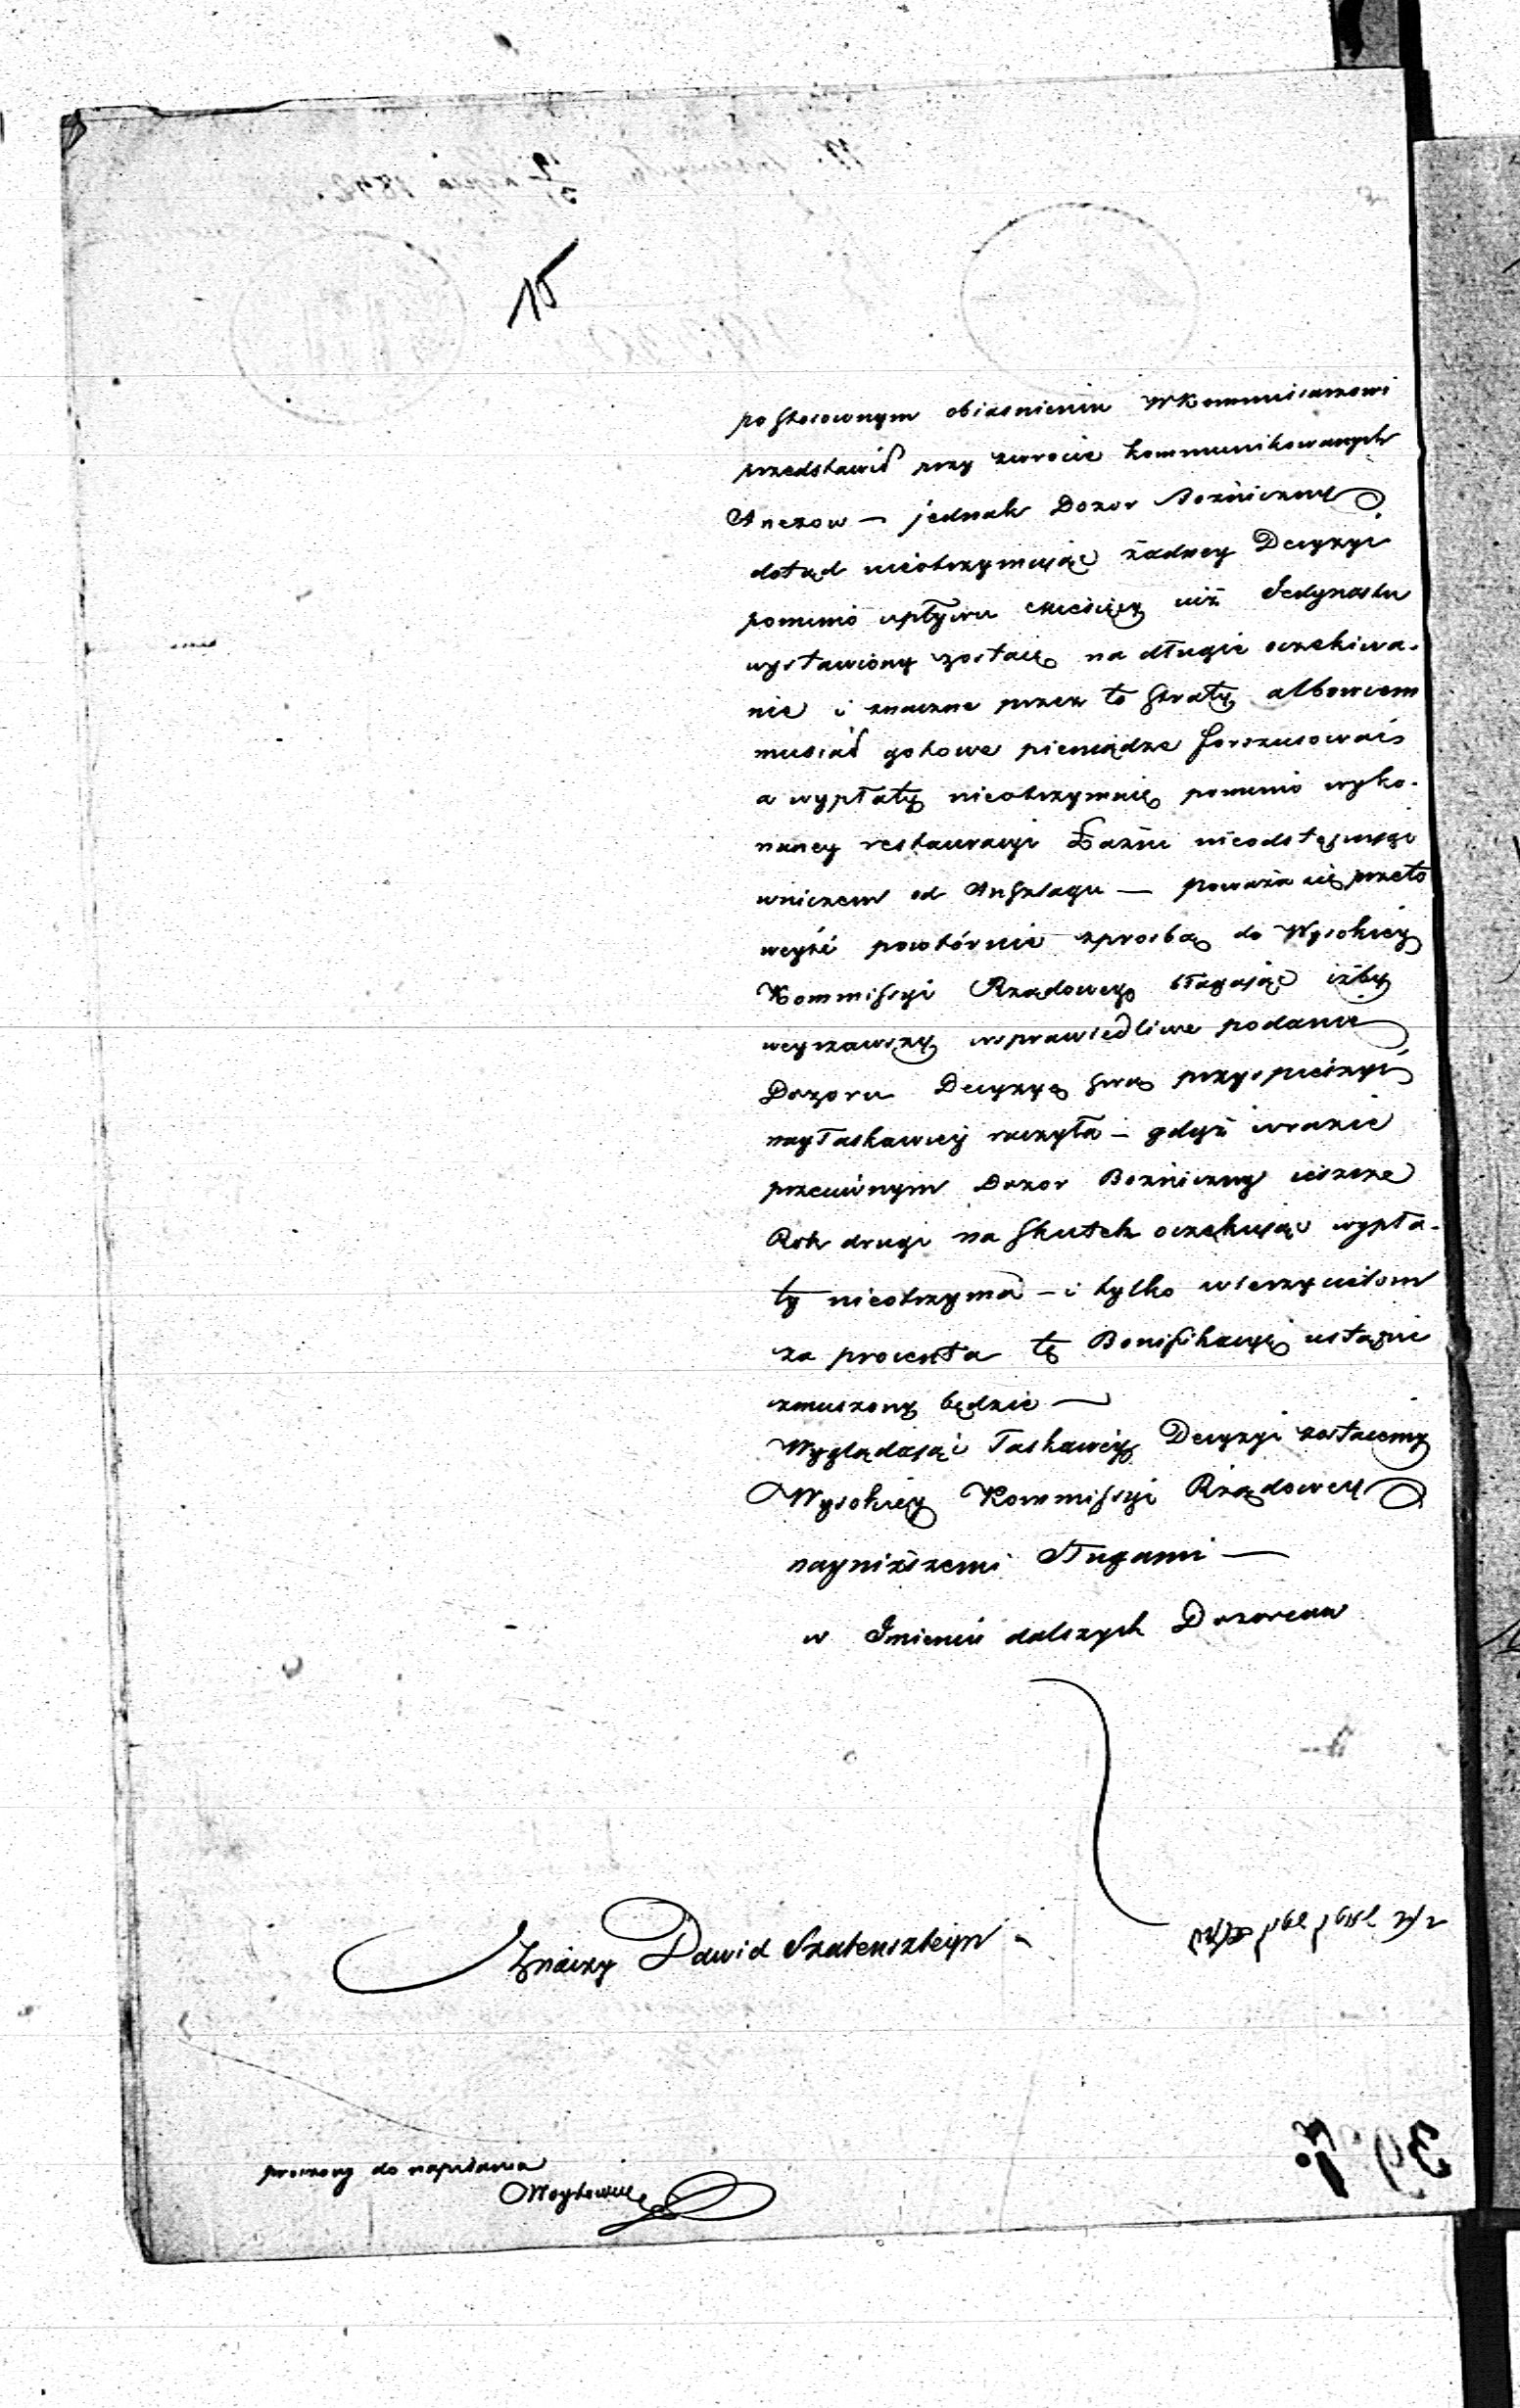 15
po stosownym obiasnieniu WKommissarzowi
przedstawił przy zwrocie kommunikowanych
Anexow — jednak Dozor Bożniczny
dotąd nieotrzymując żadney Decyzyi
pomimo upływu Miesięcy już Jedynastu
wystawiony zostaie na długie oczekiwa-
nie i znaczne przez to straty albowiem
musiał gotowe pieniądze forszusować
a wypłaty nieotrzymuie pomimo wyko-
naney restauracyi Łaźni nieodstępuiącey
wniczem od Anszlagu — poważa się przeto
weyść powtórnie zprosbą do Wysokiey
Kommissyi Rządowey błagając iżby
weyrzawszy wsprawiedliwe podanie
Dozoru Decyzyę swą przyspieszyć
nayłaskawiej raczyła — gdyż wrazie
przeciwnym Dozor Bożniczny ieszcze
Rok drugi na skutek oczekując wypła-
ty nieotrzyma — i tylko wierzycielom
za procenta tę Bonifikacyę ustąpić
zmuszony będzie —
Wyglądając łaskawey Decyzyi zostaiemy
Wysokiey Kommissyi Rządowey
nayniższemi Sługami —
w Imieniu dalszych Dozorców
Dawid Szatenszteyn
proszony do napisania